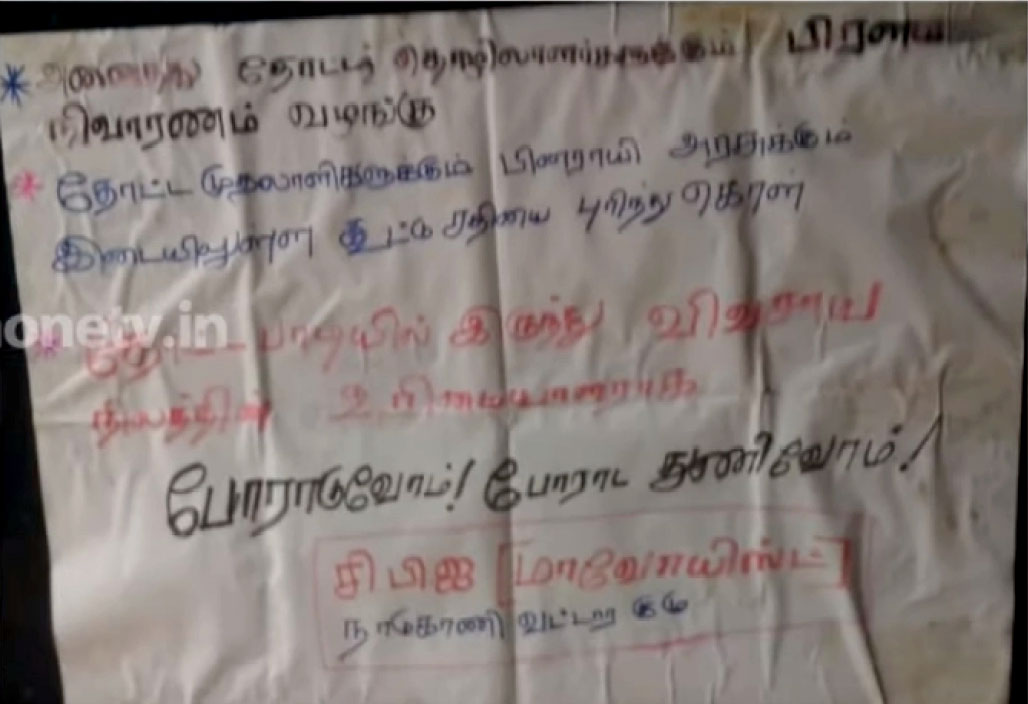 * அனைத்து தோட்டத் தொழிலாளர்களுக்கும் பிரளய
நிவாரணம் வழங்கு
* தோட்ட முதலாளிகளுக்கும் பினராயி அரசுக்கும்
இடையிலுள்ள கூட்டு சதியை புரிந்து கொள்
onetv.in
* தோட்ட பாடியில் இருந்து விவசாய
நிலத்தின் உரிமையாளராக
போராடுவோம்! போராட துணிவோம்!
சிபிஐ [மாவோயிஸ்ட்]
நாடுகாணி வட்டார குழு